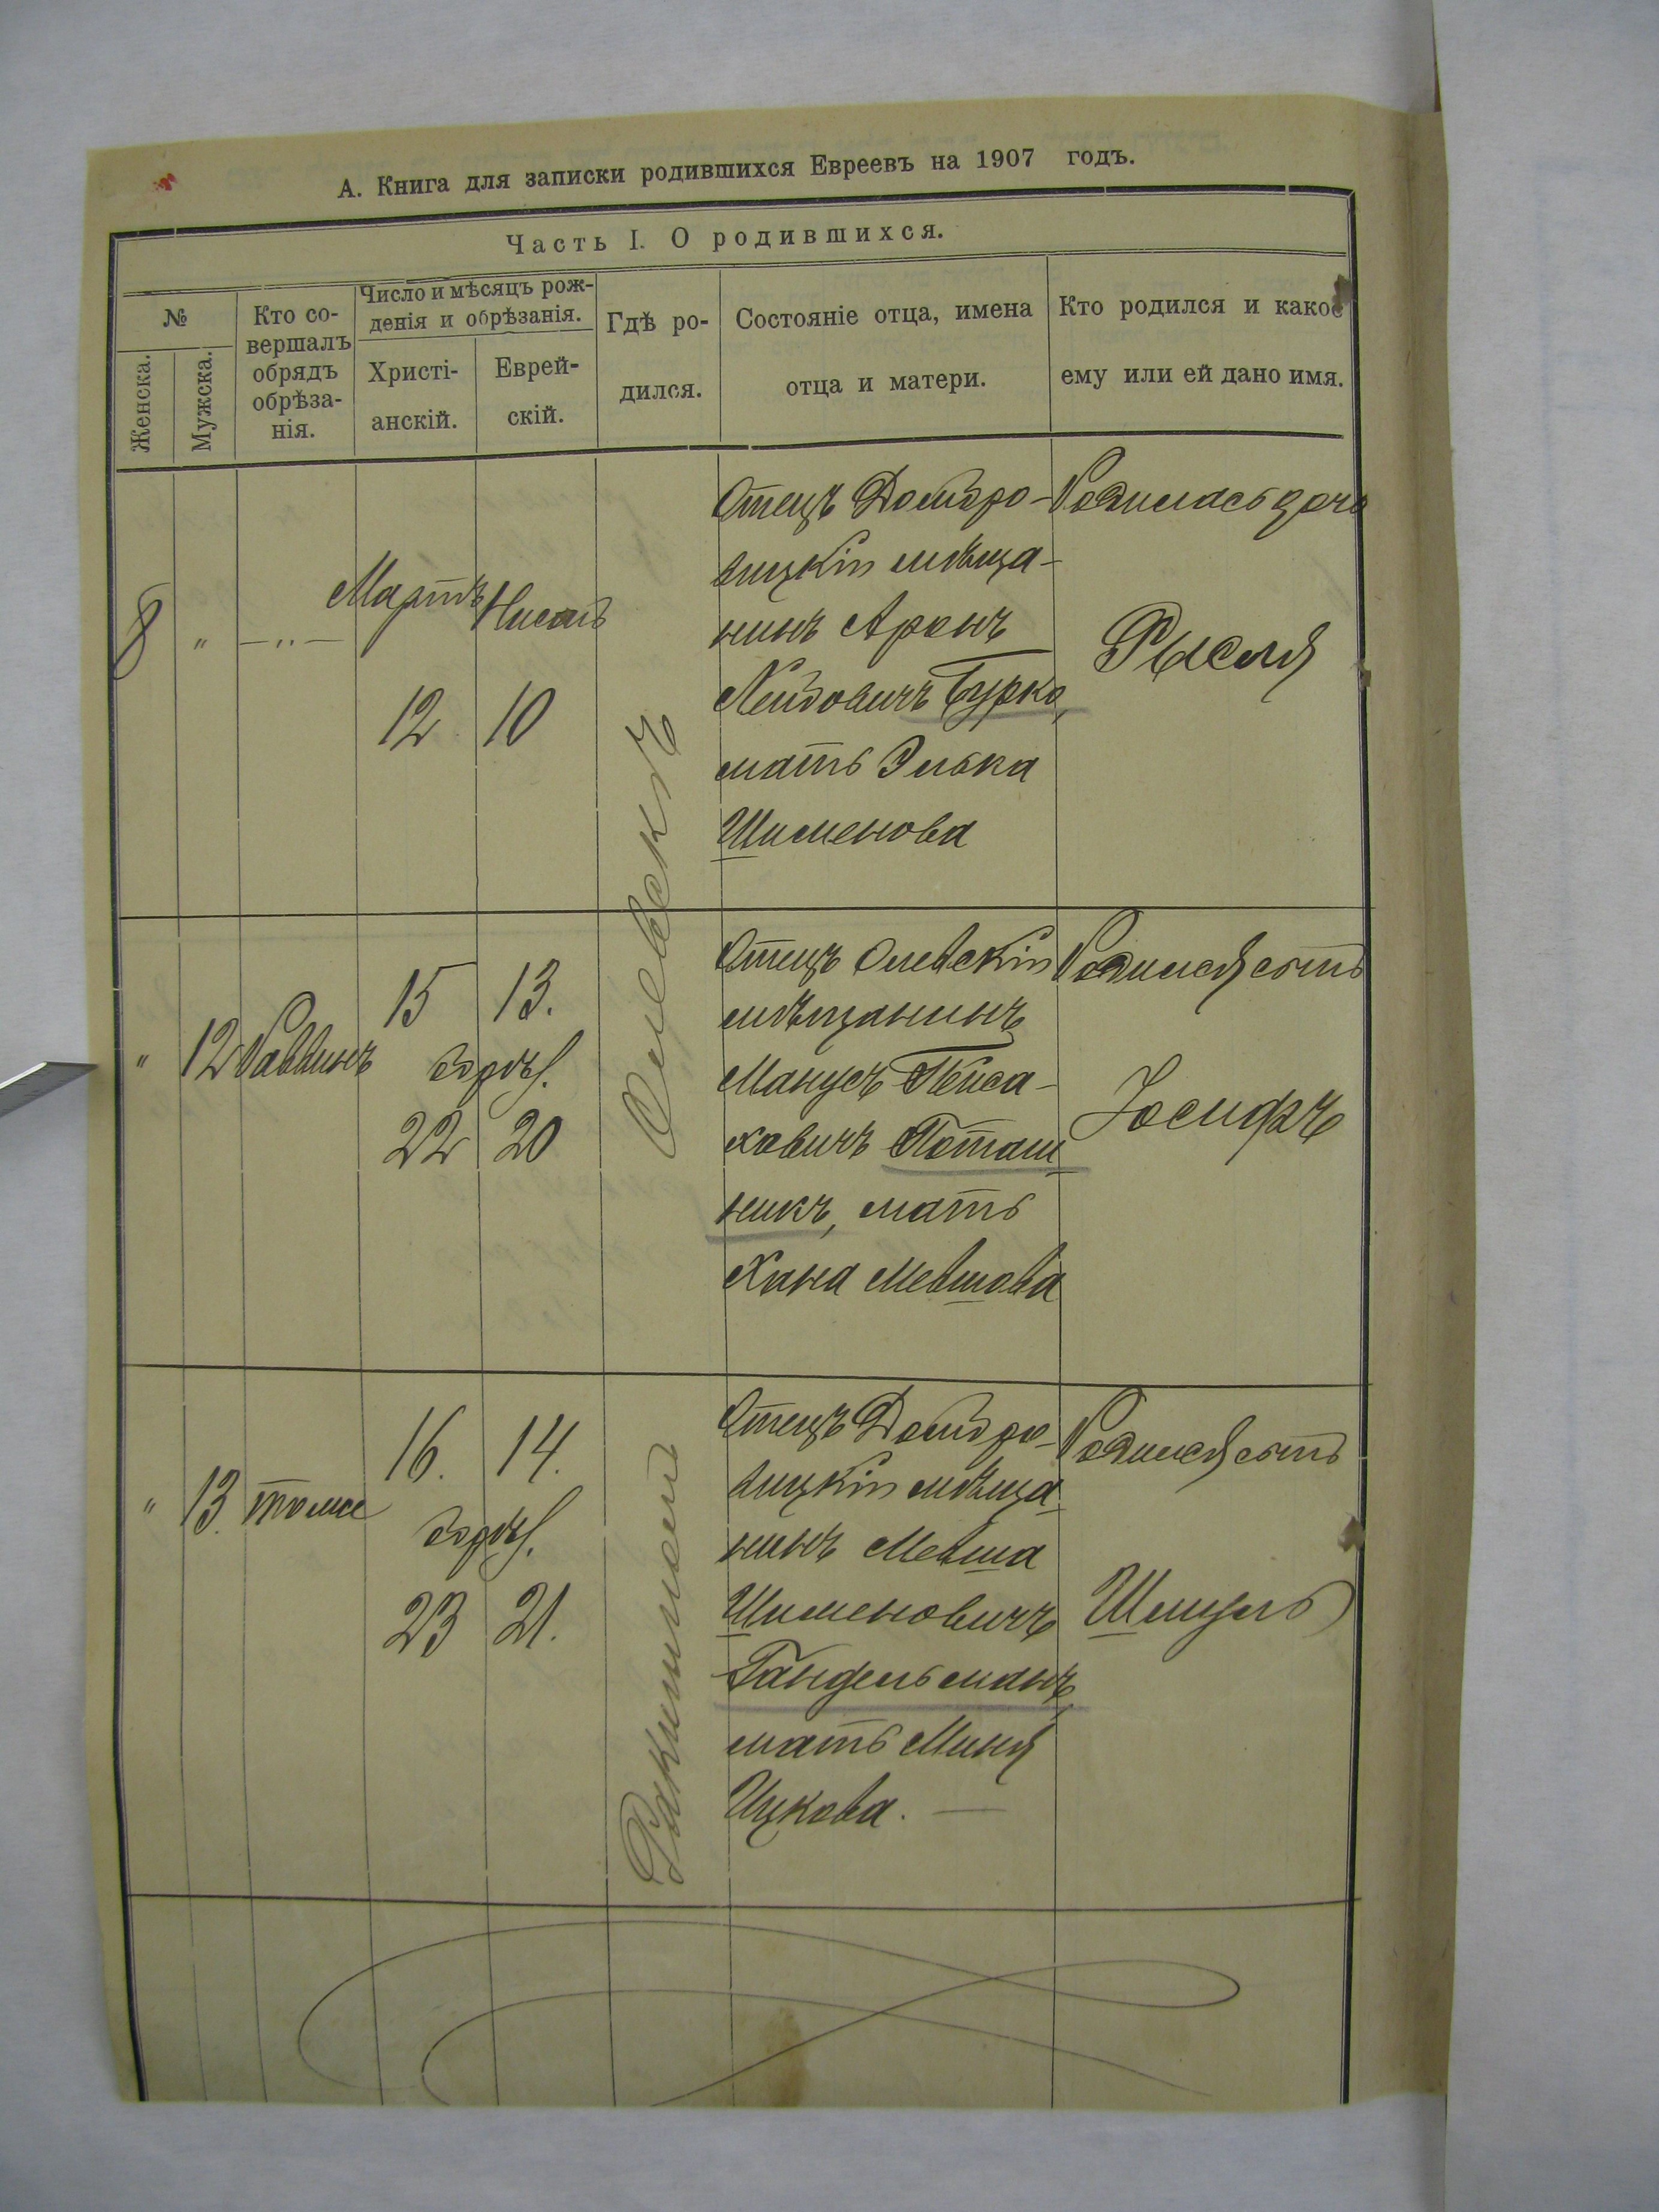 А. Книга для записки родившихся Евреевъ на 1907 годъ.
Часть I. О родившихся.
№
Женска.
Мужска.
Кто со-
вершалъ
обрядъ
обрѣза-
нія.
Число и мѣсяцъ рож-
денія и обрѣзанія.
Христі-
анскій.
Еврей-
скій.
Гдѣ ро-
дился.
Состояніе отца, имена
отца и матери.
Кто родился и какое
ему или ей дано имя.
8 " — " —
Мартъ
12
Нисонъ
10
Олевскъ
Отецъ Домбро-
вицкій мѣща-
нинъ Аронъ
Лейбовичъ Бурко,
мать Элька
Шименова
Родилась дочь
Рысля
" 12 Раввинъ
15 13.
обрѣз.
22 20
Отецъ Олевскій
мѣщанинъ
Манусъ Пейса-
ховичъ Поташ
никъ, мать
Хана Мевшова
Родился сынъ
Іосифъ
" 13. тоже
16. 14.
обрѣз.
23 21.
Отецъ Домбро-
вицкій мѣща
нинъ Мевша
Шименовичъ
Гандельманъ,
мать Миня
Ицкова. —
Родился сынъ
Шмуль